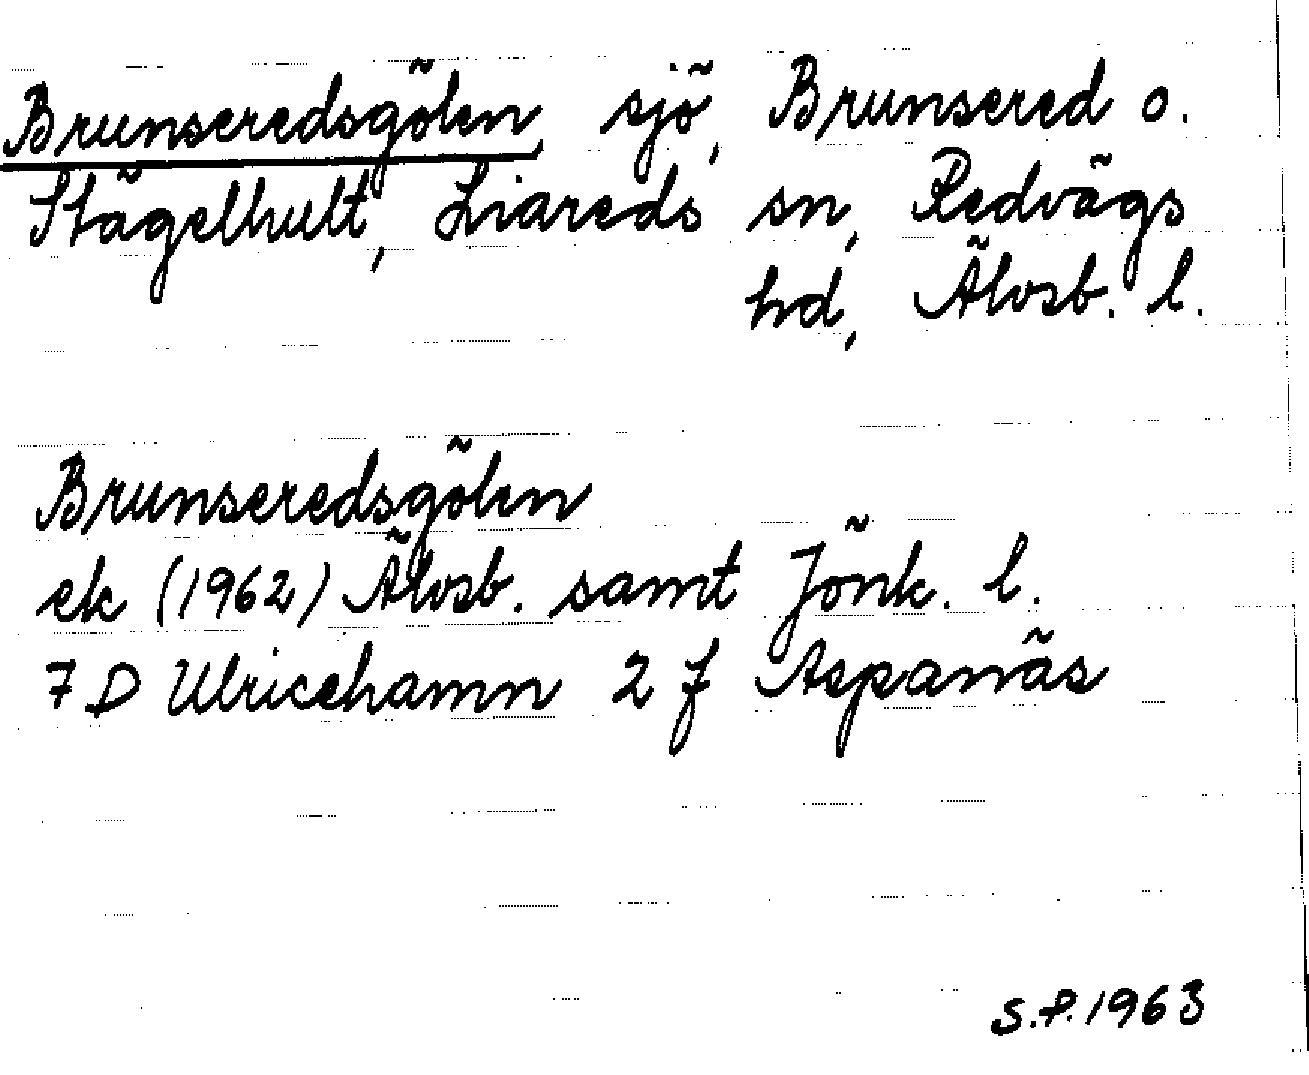 Brunseredsgölen, sjö, Brunsered o.
Stägelhult, Liareds sn, Redvägs
hd, Älvsb. l.
Brunseredsgölen
ek (1962) Älvsb. samt Jönk. l.
7 D Ulricehamn 2 f Aspanäs
S.P. 1963